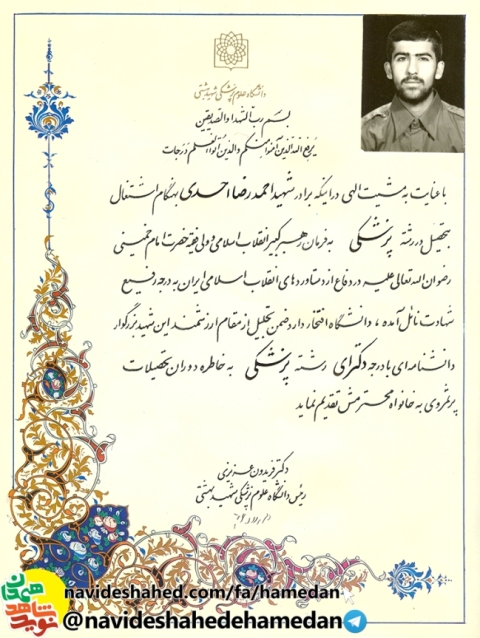 دانشگاه علوم پزشکی شهید بهشتی
بسم رب الشهدا والصدیقین
یرفع الله الذین آمنوا منکم والذین اوتوا العلم درجات
با عنایت به مشیت الهی در اینکه برادر شهید احمد رضا احدی بهنگام اشتغال
بتحصیل در رشته پزشکی به فرمان رهبر کبیر انقلاب اسلامی و ولی فقیه حضرت امام خمینی
رضوان الله تعالی علیه در دفاع از دستاوردهای انقلاب اسلامی ایران به درجه رفیع
شهادت نائل آمده ، دانشگاه افتخار دارد ضمن تجلیل از مقام ارزشمند این شهید بزرگوار
دانشنامه ای با درجه دکترای رشته پزشکی به خاطره دوران تحصیلات
پرثمروی به خانواه محترمش تقدیم نماید
دکتر فریدون عزیزی
رئیس دانشگاه علوم پزشکی شهید بهشتی
navideshahed.com/fa/hamedan
@navideshahedehamedan
نوید شاهد
همدان